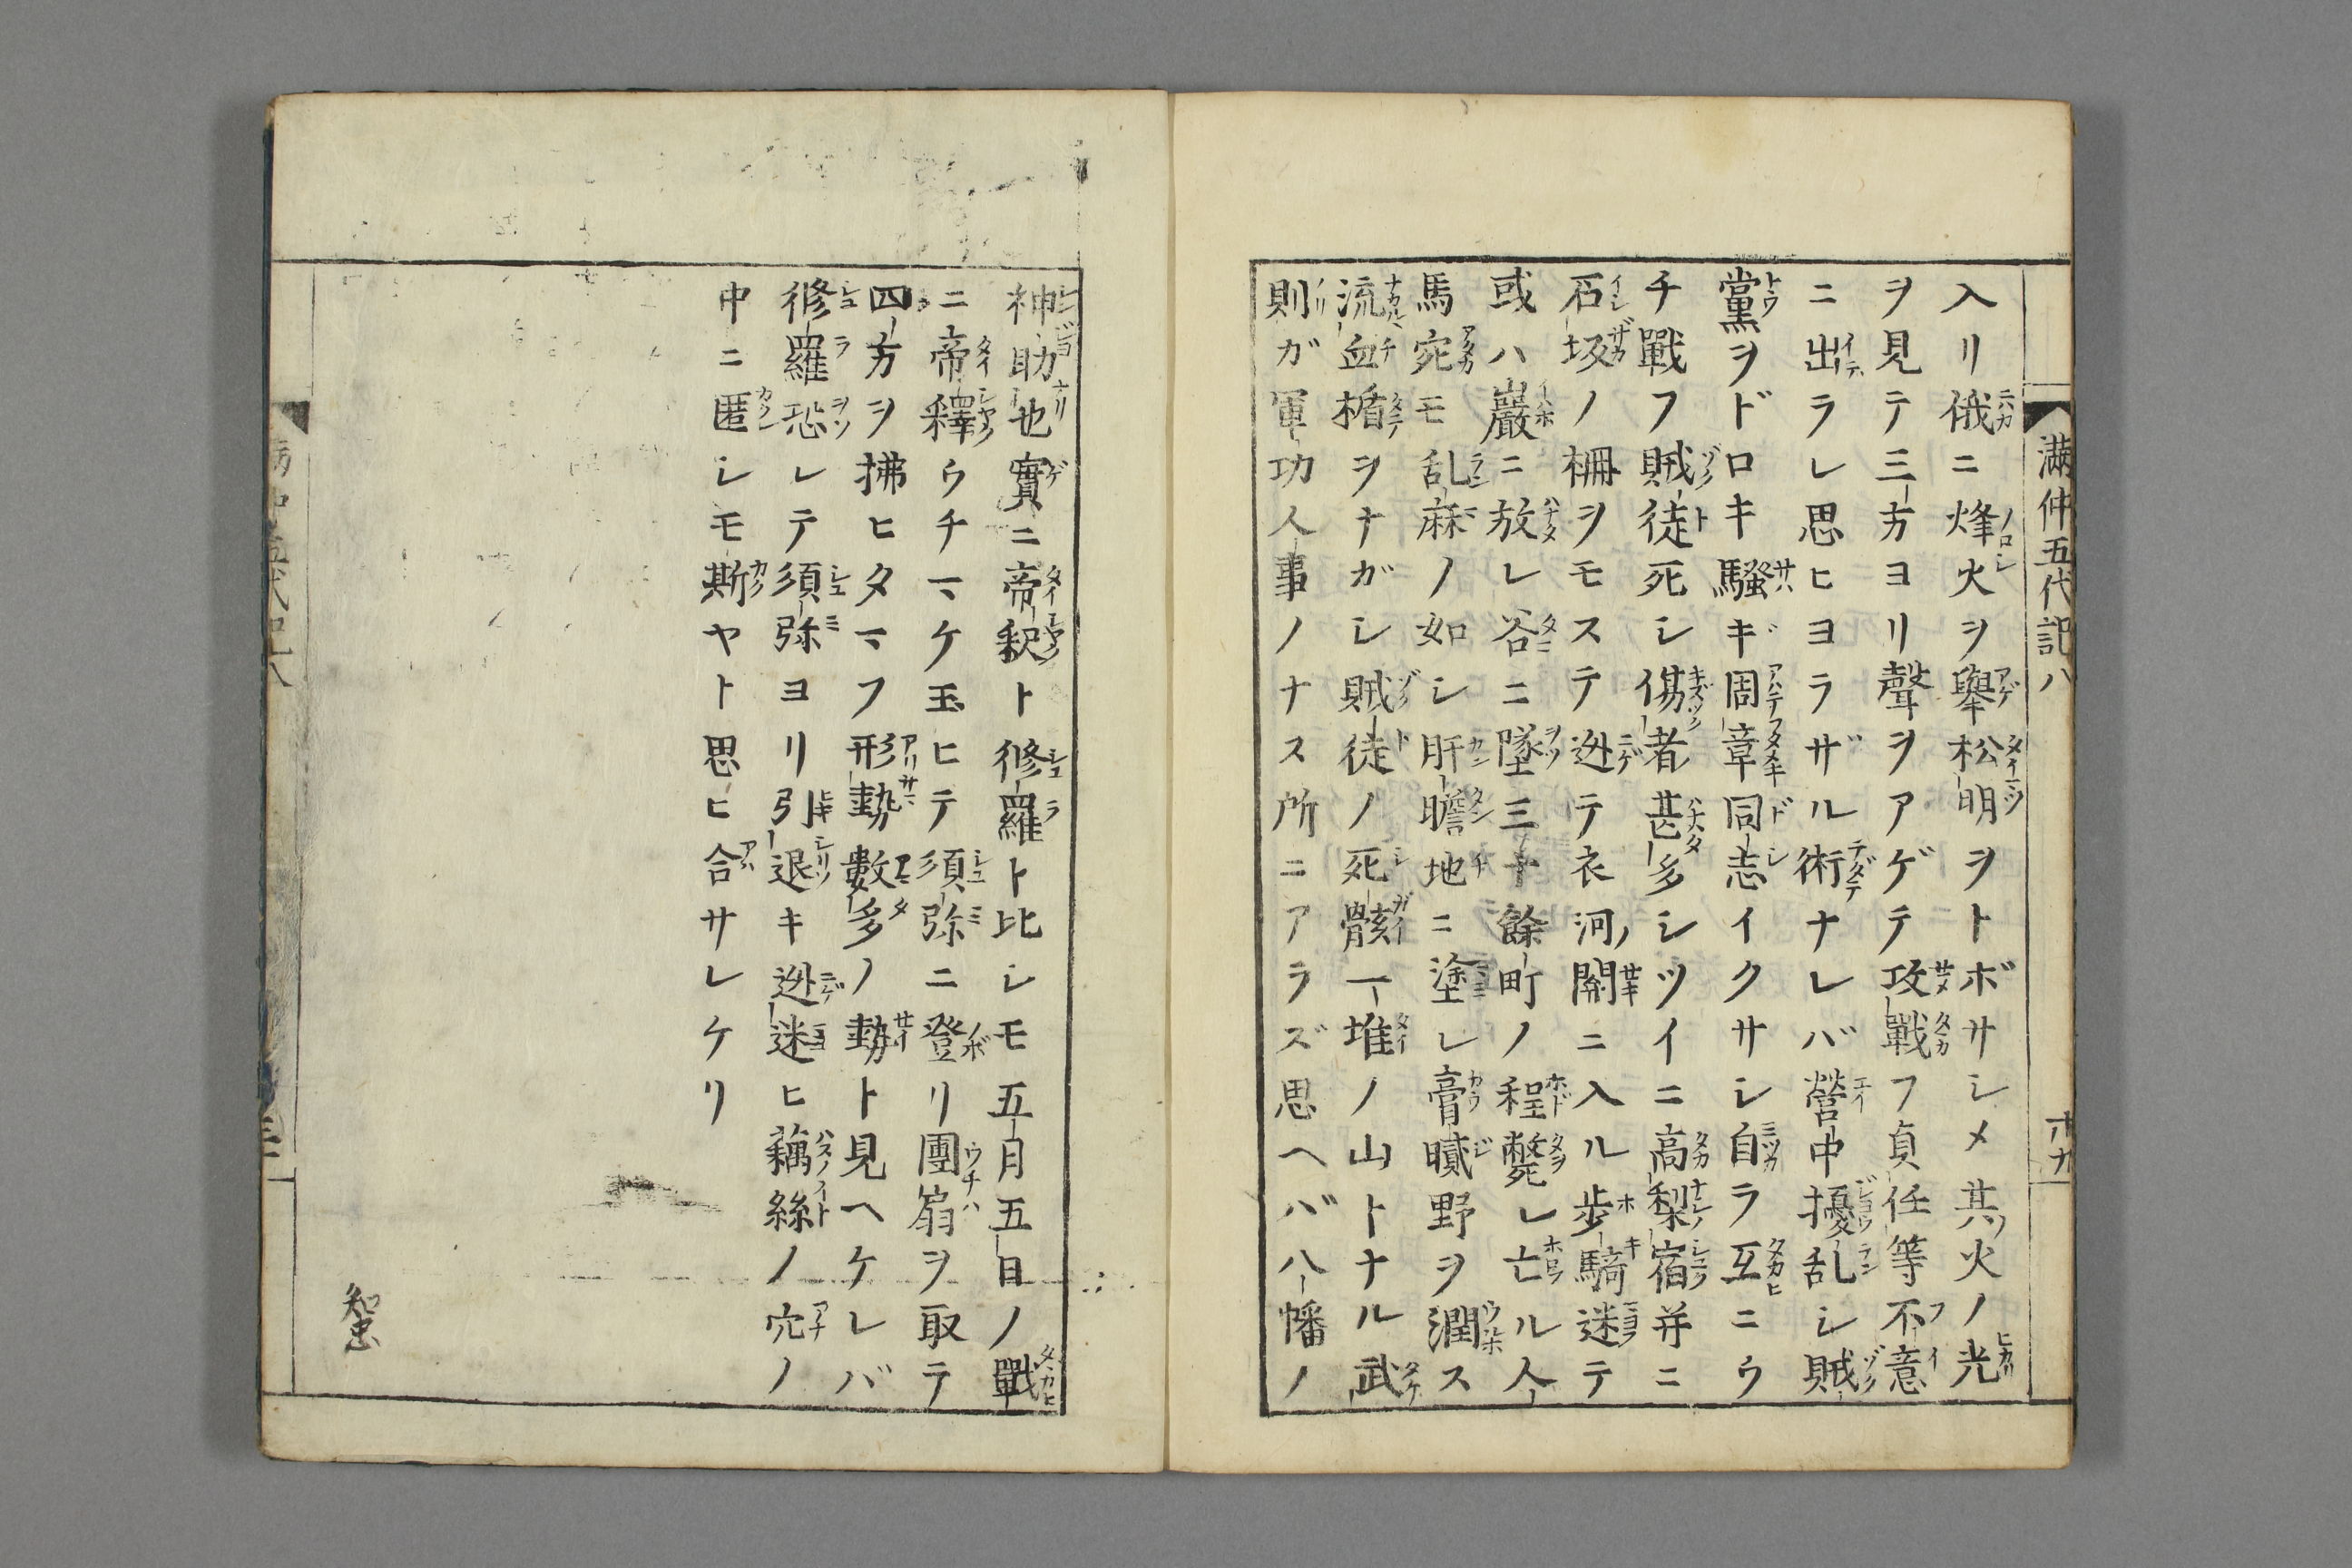 満仲五代記八
十九
入リ俄ニ烽火ヲ擧松明ヲトボサシメ其火ノ光
ヲ見テ三方ヨリ聲ヲアゲテ攻戰フ貞任等不意
ニ出ラレ思ヒヨラザル術ナレバ營中擾乱シ賊
黨ヲドロキ騷ギ周章同志イクサシ自ラ互ニウ
チ戰フ賊徒死シ傷者甚多シツイニ高梨宿并ニ
石坂ノ柵ヲモステ迯テ衣河ノ關ニ入ル歩騎迷テ
或ハ巖ニ放レ谷ニ墜三十餘町ノ程斃レ亡ル人
馬宛モ乱麻ノ如シ肝膽地ニ塗レ膏膱野ヲ潤ス
流血楯ヲナガシ賊徒ノ死骸一堆ノ山トナル武
則ガ軍功人事ノナス所ニアラズ思ヘバ八幡ノ
神助也實ニ帝釈ト修羅ト比シモ五月五日ノ戰
ニ帝釋ウチマケ玉ヒテ須弥ニ登リ團扇ヲ取テ
四方ヲ拂ヒタマフ形勢數多ノ勢ト見ヘケレバ
修羅恐レテ須弥ヨリ引退キ迯迷ヒ藕絲ノ穴ノ
中ニ匿レモ斯ヤト思ヒ合サレケリ